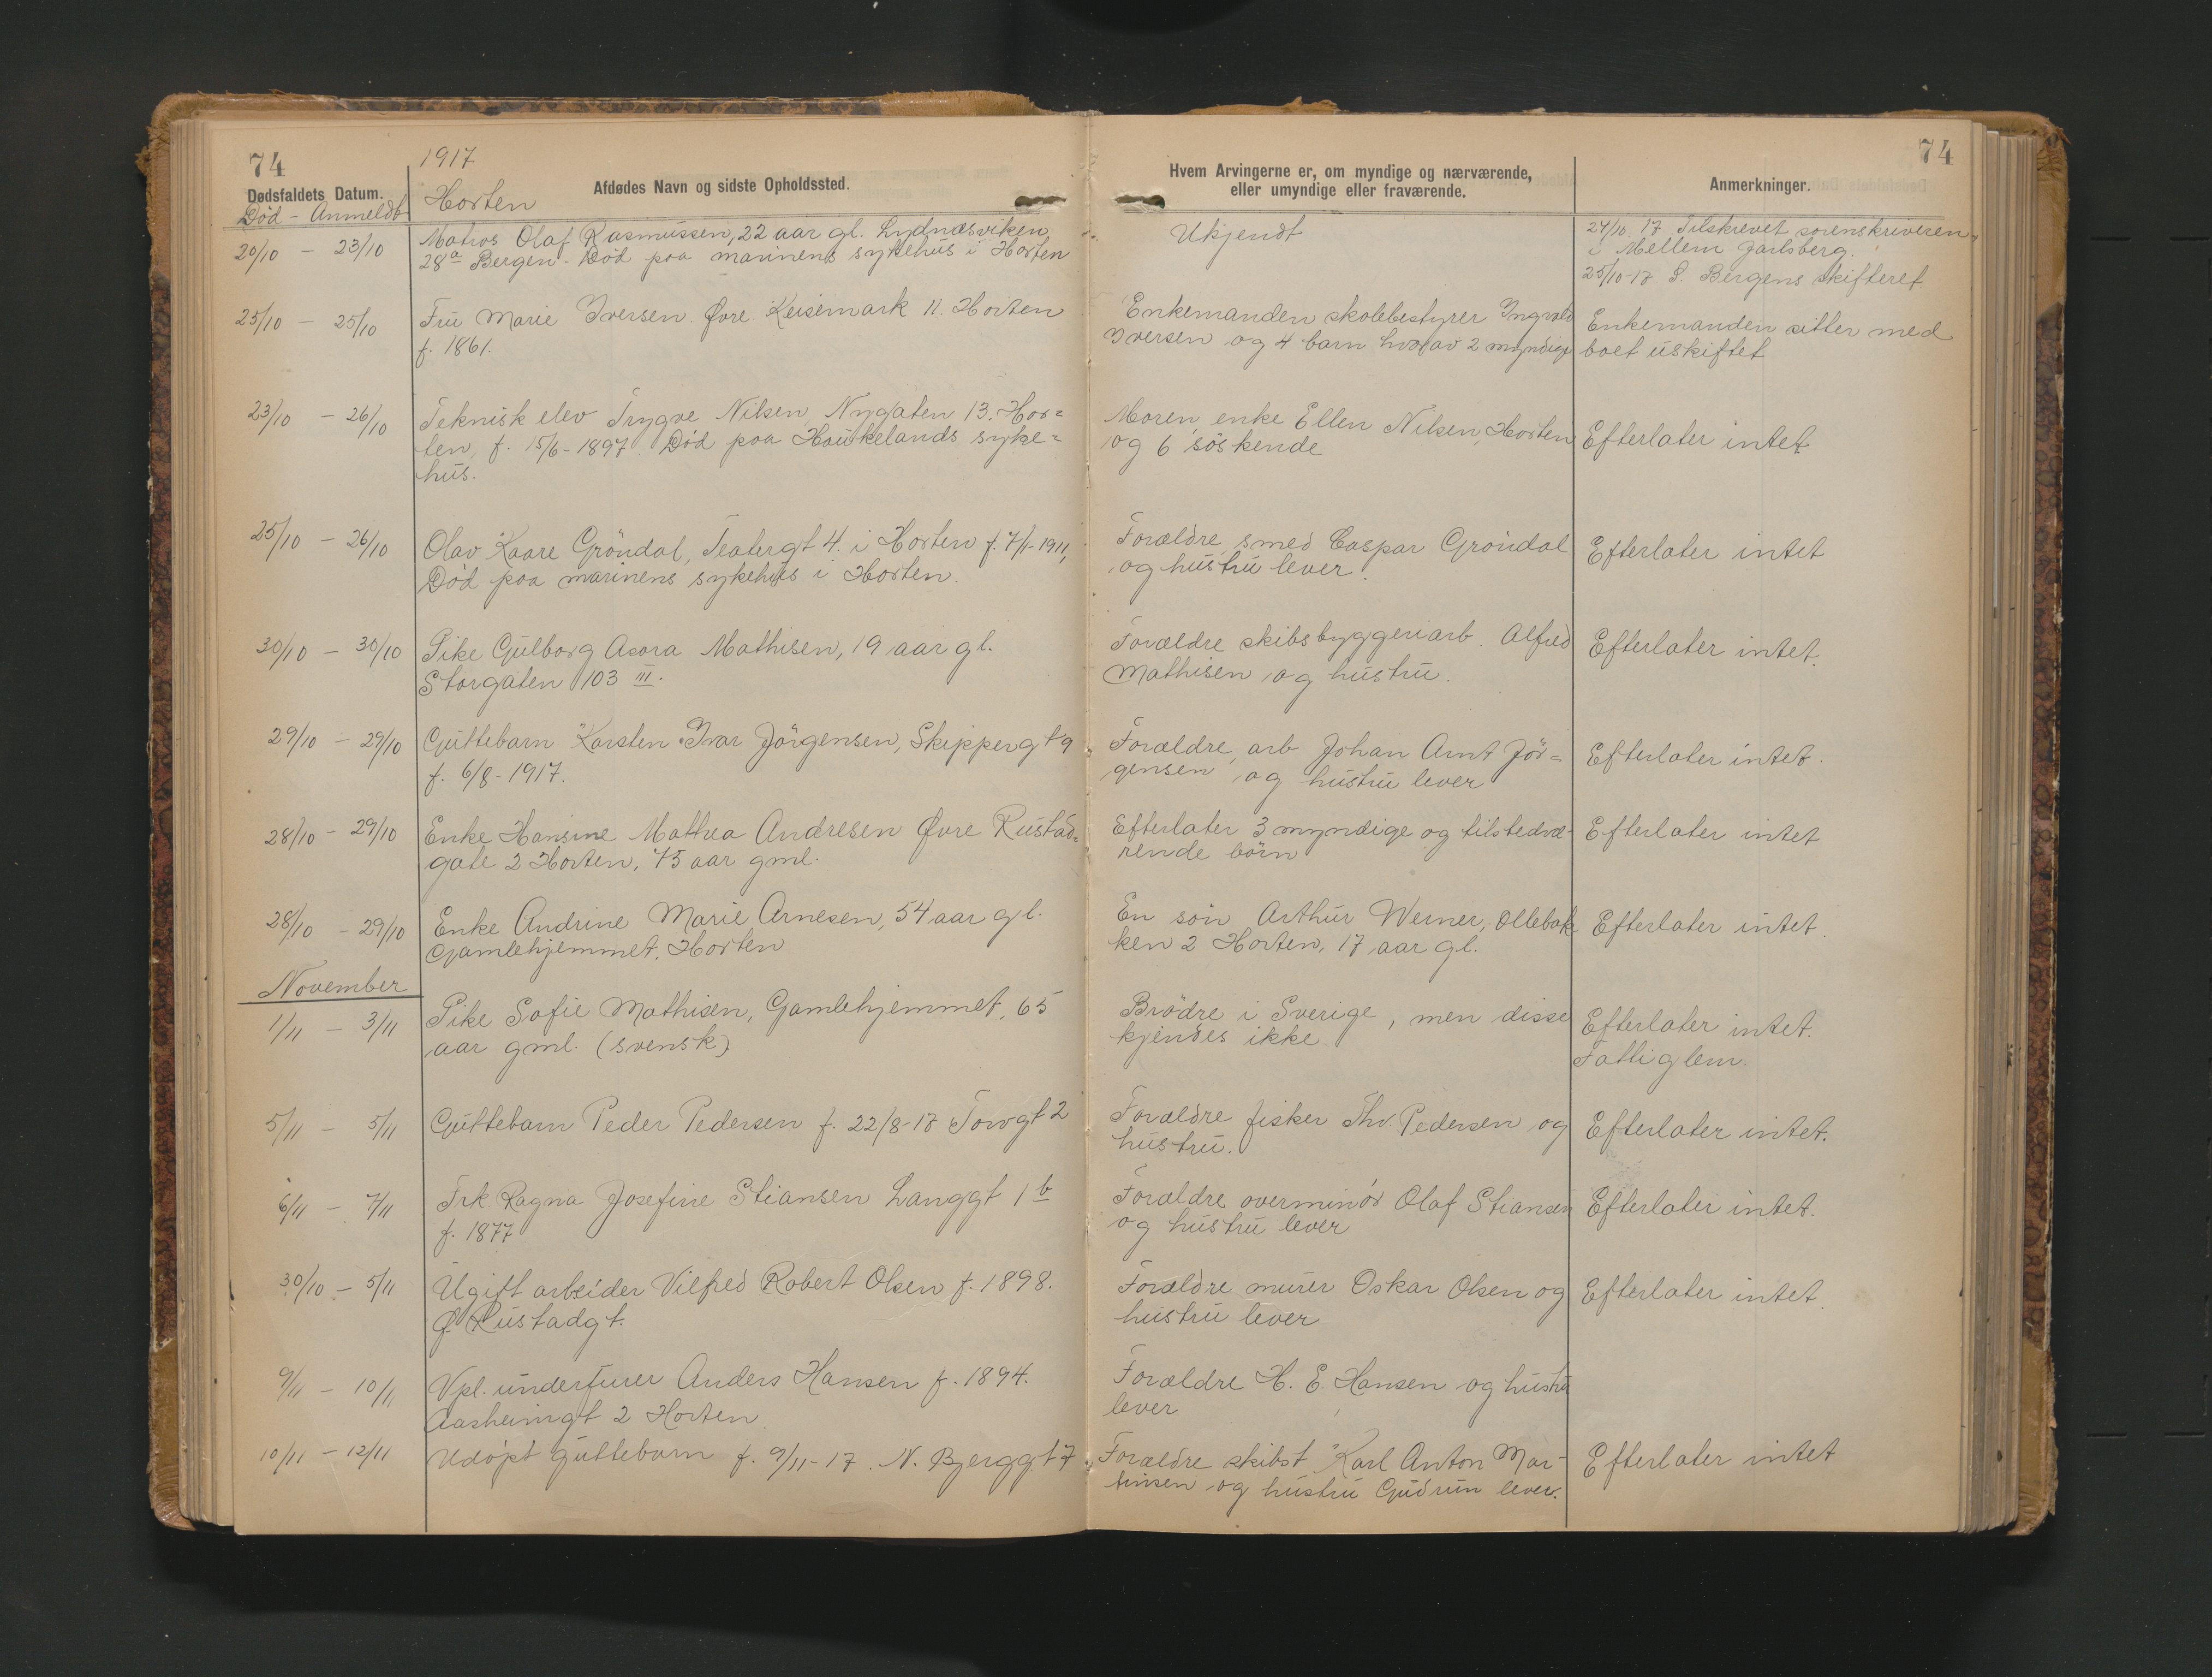 74
1917
Dødsfaldets Datum.
Afdødes Navn og sidste Opholdssted.
Død - Anmeldt
Horten
Hvem Arvingerne er, om myndige og nærværende,
eller umyndige eller fraværende.
Anmerkninger.
74
20/10 - 23/10
Matros Olaf Rasmussen, 22 aar gl. Lydnæsviken
28a Bergen. Død paa marinens sykehus i Horten
Ukjendt
24/10. 17 Tilskrevet sorenskriveren
i Mellem Jarlsberg.
25/10-17 S. Bergens skifteret
25/10 - 25/10
Fru Marie Iversen Øvre Keisemark 11. Horten
f. 1861.
Enkemanden skolebestyrer Ingvald
Iversen og 4 barn hvorav 2 myndige
Enkemanden sitter med
boet uskiftet
23/10 - 26/10
Teknisk elev Trygve Nilsen, Nygaten 13. Hor=
ten, f. 15/6-1897. Død paa Haukelands syke=
hus.
Moren, enke Ellen Nilsen, Horten
og 6 söskende
Efterlater intet
25/10 - 26/10
Olav Kaare Gröndal, Teatergt 4. i Horten f. 7/1-1911,
Död paa marinens sykehus i Horten.
Forældre, smed Caspar Gröndal
og hustru lever.
Efterlater intet
30/10 - 30/10
Pike Gulborg Asora Mathisen, 19 aar gl.
Storgaten 103 III.
Forældre skibsbyggeriarb. Alfred
Mathisen og hustru.
Efterlater intet.
29/10 - 29/10
Guttebarn Karsten Ivar Jörgensen, Skippergt 9
f. 6/8-1917.
Forældre, arb Johan Arnt Jör=
gensen og hustru lever
Efterlater intet.
28/10 - 29/10
Enke Hansine Mathea Andresen Øvre Rustad=
gate 2 Horten, 75 aar gml.
Efterlater 3 myndige og tilstedvæ-
rende börn
Efterlater intet
28/10 - 29/10
Enke Andrine Marie Arnesen, 54 aar gl.
Gamlehjemmet. Horten
En sön Arthur Werner, Ollebak
ken 2 Horten, 17 aar gl.
Efterlater intet.
November
1/11 - 3/11
Pike Sofie Mathisen, Gamlehjemmet, 65
aar gml. (svensk)
Brödre i Sverige, men disse
kjendes ikke
Efterlater intet.
Fattiglem.
5/11 - 5/11
Guttebarn Peder Pedersen f. 22/8-17 Torvgt 2
Forældre fisker Thv. Pedersen og
hustru.
Efterlater intet.
6/11 - 7/11
Frk. Ragna Josefine Stiansen Langgt 1 b
f. 1877
Forældre overminör Olaf Stiansen
og hustru lever
Efterlater intet.
30/10 - 5/11
Ugift arbeider Vilfred Robert Olsen f. 1898.
Ø. Rustadgt.
Forældre murer Oskar Olsen og
hustru lever
Efterlater intet.
9/11 - 10/11
Vpl. underfurer Anders Hansen f. 1894.
Aasheimgt 2 Horten
Forældre H. E. Hansen og hustru
lever
10/11 - 12/11
Udöpt guttebarn f. 9/11-17. N. Bjerggt 7
Forældre skibst. Karl Anton Mar-
tinsen og hustru Gudrun lever.
Efterlater intet